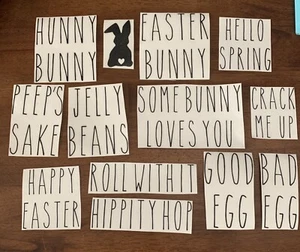 HUNNY
BUNNY
EASTER
BUNNY
HELLO
SPRING
PEEP'S
SAKE
JELLY
BEANS
SOME BUNNY
LOVES YOU
CRACK
ME UP
HAPPY
EASTER
ROLL WITH IT
HIPPITY HOP
GOOD
EGG
BAD
EGG